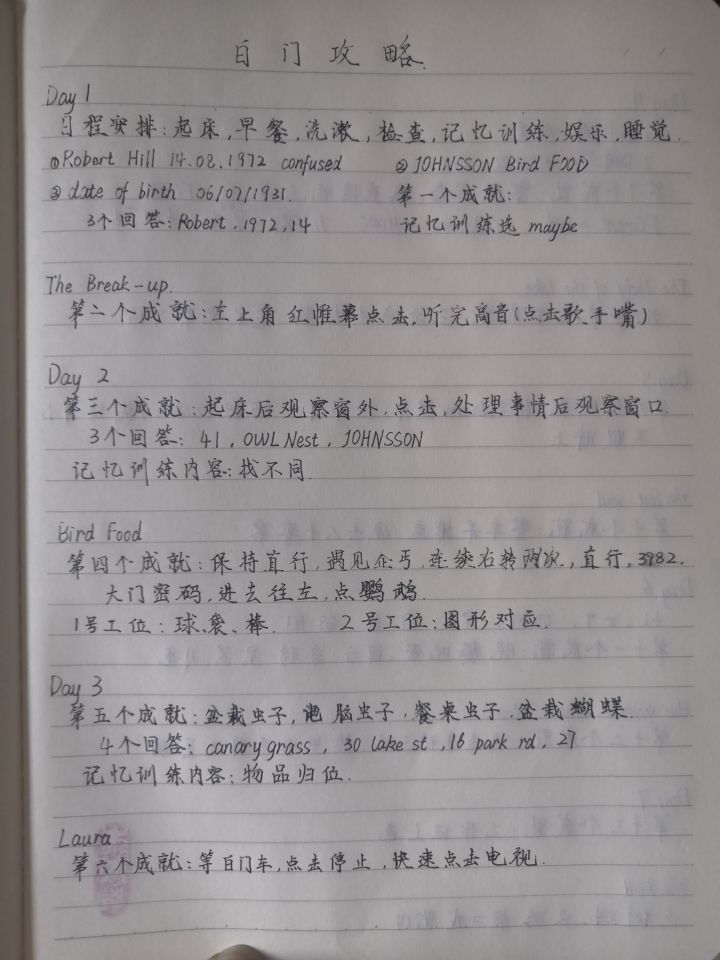 白门攻略
Day 1
日程安排:起床,早餐,洗漱,检查,记忆训练,娱乐,睡觉.
①Robert Hill 14.02.1972 confused ②JOHNSSON Bird FOOD
③date of birth 06/07/1931. 第一个成就:
3个回答:Robert,1972,14 记忆训练选 maybe
The Break-up.
第二个成就:左上角红帷幕点击,听完高音(点击歌手嘴)
Day 2
第三个成就:起床后观察窗外,点击,处理事情后观察窗口.
3个回答: 41, OWL Nest, JOHNSSON
记忆训练内容:找不同.
Bird Food
第四个成就:保持直行,遇见乞丐,连续右转两次,直行,3982.
大门密码,进去往左,点鹦鹉.
1号工位:球、袋、棒. 2号工位:图形对应.
Day 3
第五个成就:盆栽虫子,电脑虫子,餐桌虫子,盆栽蝴蝶.
4个回答:canary grass, 30 lake st, 16 park rd, 27
记忆训练内容:物品归位.
Laura
第六个成就:等白门车,点击停止,快速点击电视.